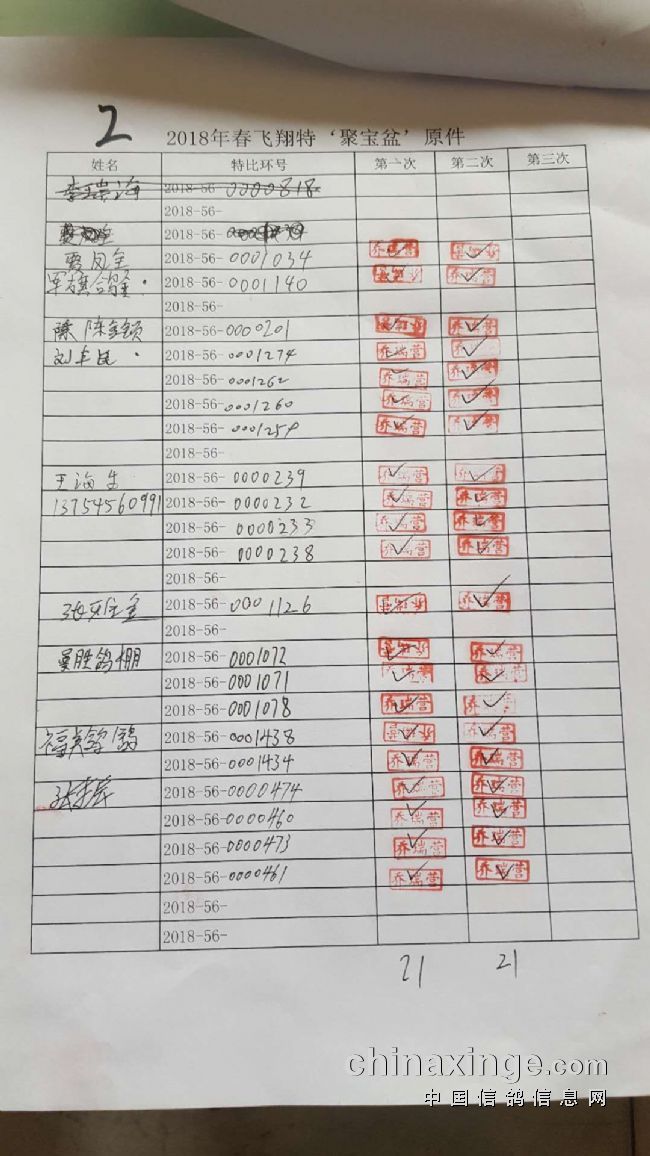 2
2018年春飞翔特‘聚宝盆’原件
姓名 特比环号 第一次 第二次 第三次
李瑞海 2018-56-0000818
2018-56-
2018-56-
贾凤全 2018-56-0001034
军旗鸽舍 2018-56-0001140
2018-56-
2018-56-0000201
2018-56-0001274 乔瑞营
2018-56-0001262 乔瑞营
2018-56-0001260 乔瑞营
2018-56-0001259 乔瑞营
2018-56-
王海生 2018-56-0000239 乔瑞营
13754560991 2018-56-0000232 乔瑞营
2018-56-0000233 乔瑞营
2018-56-0000238 乔瑞营 乔瑞营
2018-56-
2018-56-0001126
2018-56-
2018-56-0001072 乔瑞营
2018-56-0001071 乔瑞营
2018-56-0001078 乔瑞营
2018-56-0001438 乔瑞营
2018-56-0001434 乔瑞营 乔瑞营
2018-56-0000474 乔瑞营 乔瑞营
2018-56-0000460 乔瑞营 乔瑞营
2018-56-0000473 乔瑞营 乔瑞营
2018-56-0000461 乔瑞营 乔瑞营
2018-56-
2018-56-
21 21
chinaxinge.com
中国信鸽信息网